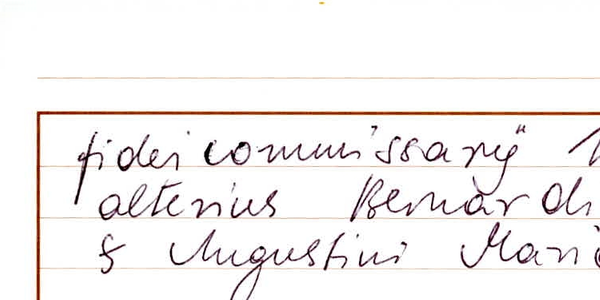 fidei commissarÿ
alterius Bernardi
& Augustini Mari